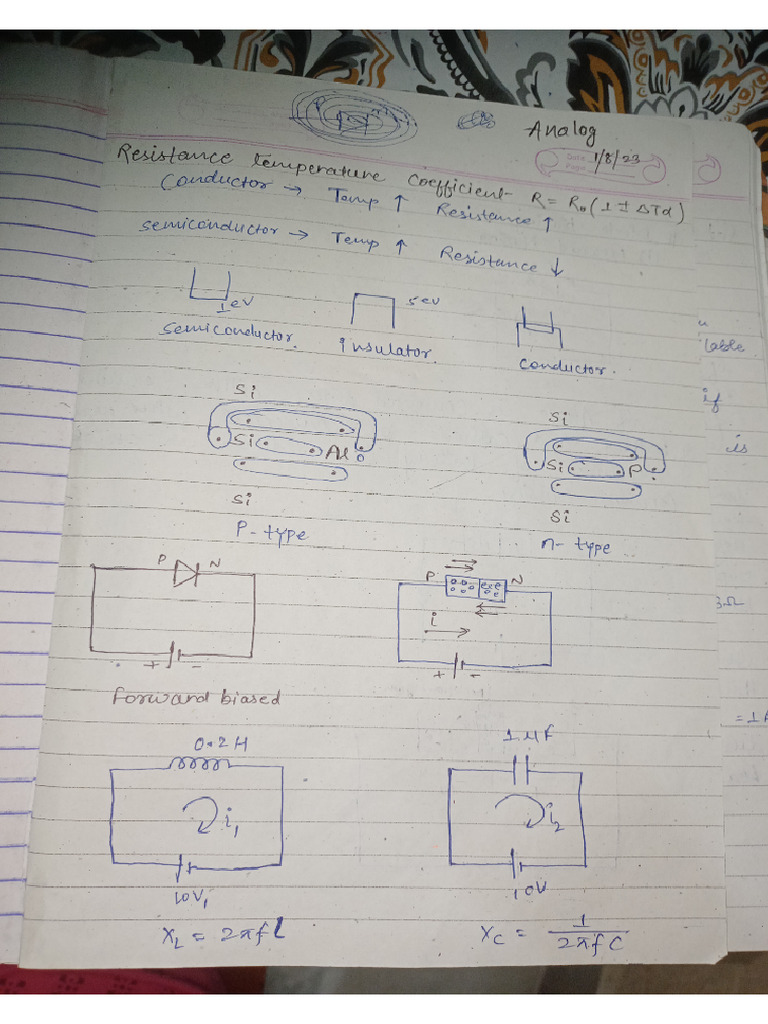 Analog
Date 1/8/23
Page
Resistance temperature coefficient- R = R₀(1 ± ΔTα)
Conductor → Temp ↑ Resistance ↑
semiconductor → Temp ↑ Resistance ↓
1ev
5ev
semiconductor.
insulator.
conductor.
Si
Si
Si Al
Si P
Si
Si
P-type
n-type
P N
P N
i
+ -
+ -
forward biased
0.2H
1µF
i₁
i₂
10V,
10V
X_L = 2πfL
X_C = 1/2πfC
lable
if
is
3Ω